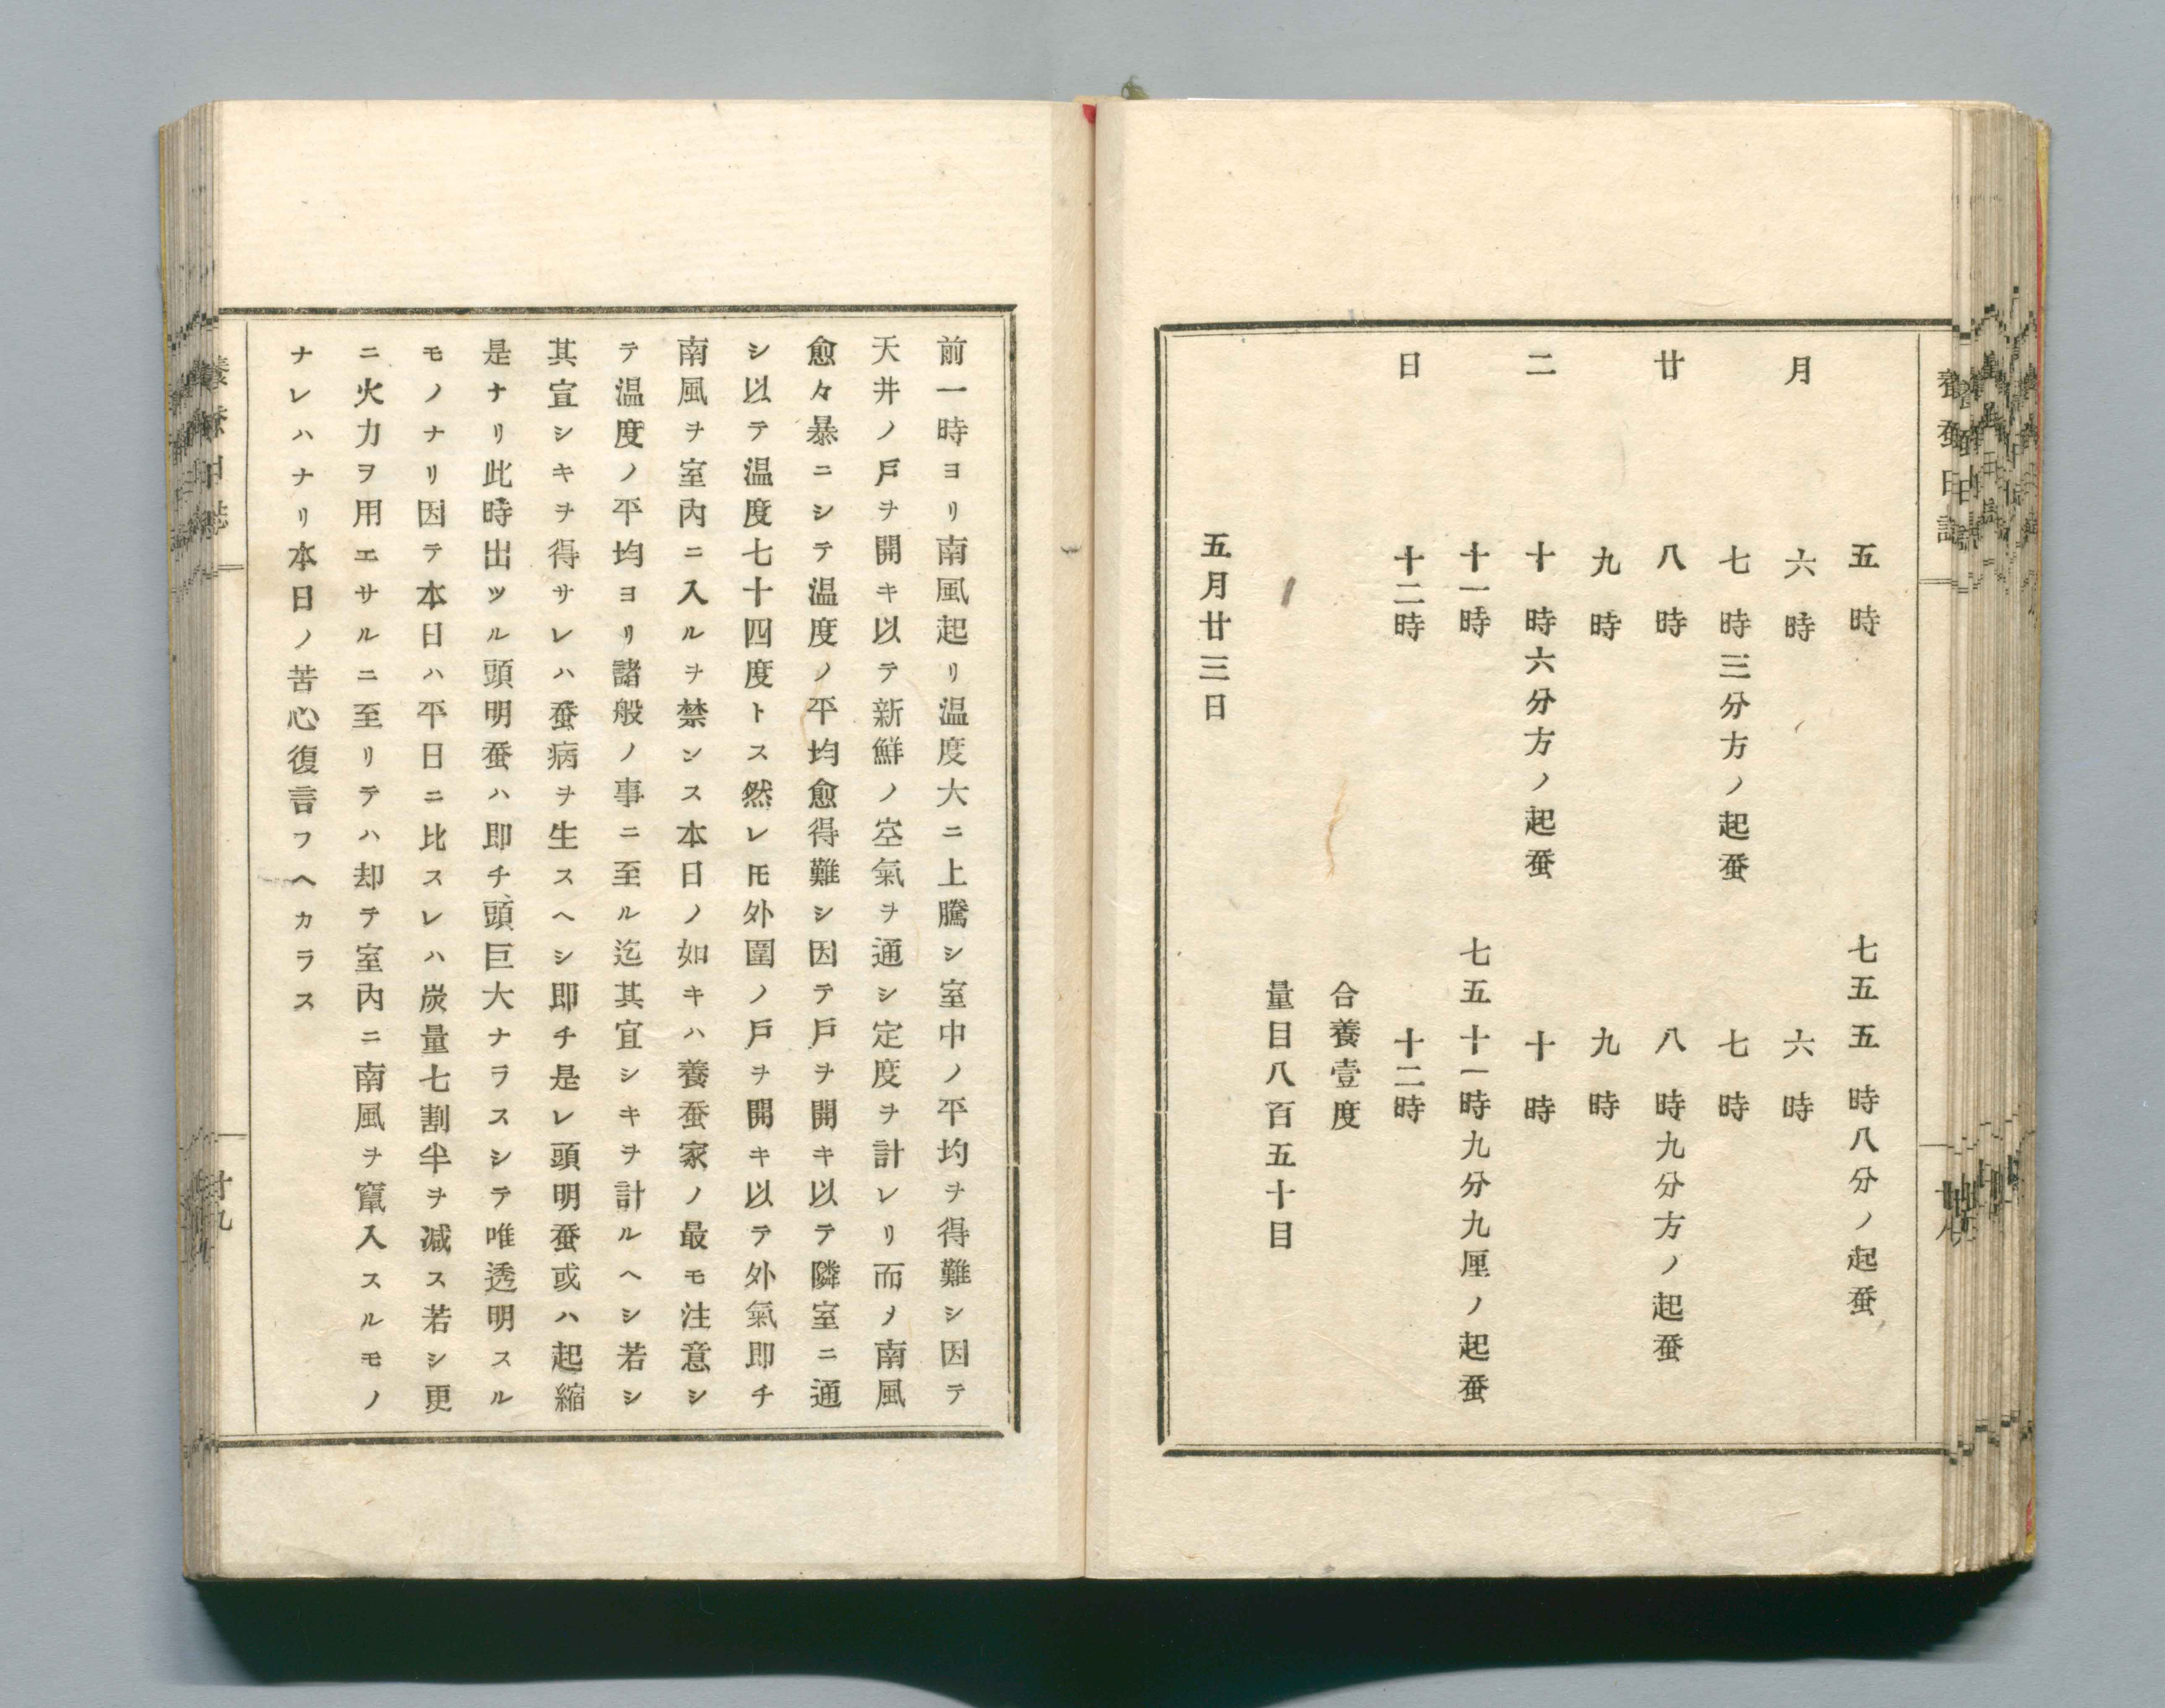 養蚕日誌
五時 七五 五時八分ノ起蚕
月 六時 六時
七時三分方ノ起蚕 七時
廿 八時 八時九分方ノ起蚕
九時 九時
二 十時六分方ノ起蚕 十時
十一時 七五 十一時九分九厘ノ起蚕
日 十二時 十二時
合養壹度
量目八百五十目
五月廿三日
前一時ヨリ南風起リ温度大ニ上騰シ室中ノ平均ヲ得難シ因テ
天井ノ戸ヲ開キ以テ新鮮ノ空氣ヲ通シ定度ヲ計レリ而ノ南風
愈々暴ニシテ温度ノ平均愈得難シ因テ戸ヲ開キ以テ隣室ニ通
シ以テ温度七十四度トス然レ𪜈外圍ノ戸ヲ開キ以テ外氣即チ
南風ヲ室内ニ入ルヲ禁シス本日ノ如キハ養蚕家ノ最モ注意シ
テ温度ノ平均ヨリ諸般ノ事ニ至ル迄其宜シキヲ計ルヘシ若シ
其宜シキヲ得サレハ蚕病ヲ生スヘシ即チ是レ頭明蚕或ハ起縮
是ナリ此時出ツル頭明蚕ハ即チ頭巨大ナラスシテ唯透明スル
モノナリ因テ本日ハ平日ニ比スレハ炭量七割半ヲ減ス若シ更
ニ火力ヲ用エサルニ至リテハ却テ室内ニ南風ヲ竄入スルモノ
ナレハナリ本日ノ苦心復言フヘカラス
養蚕日誌
廿九